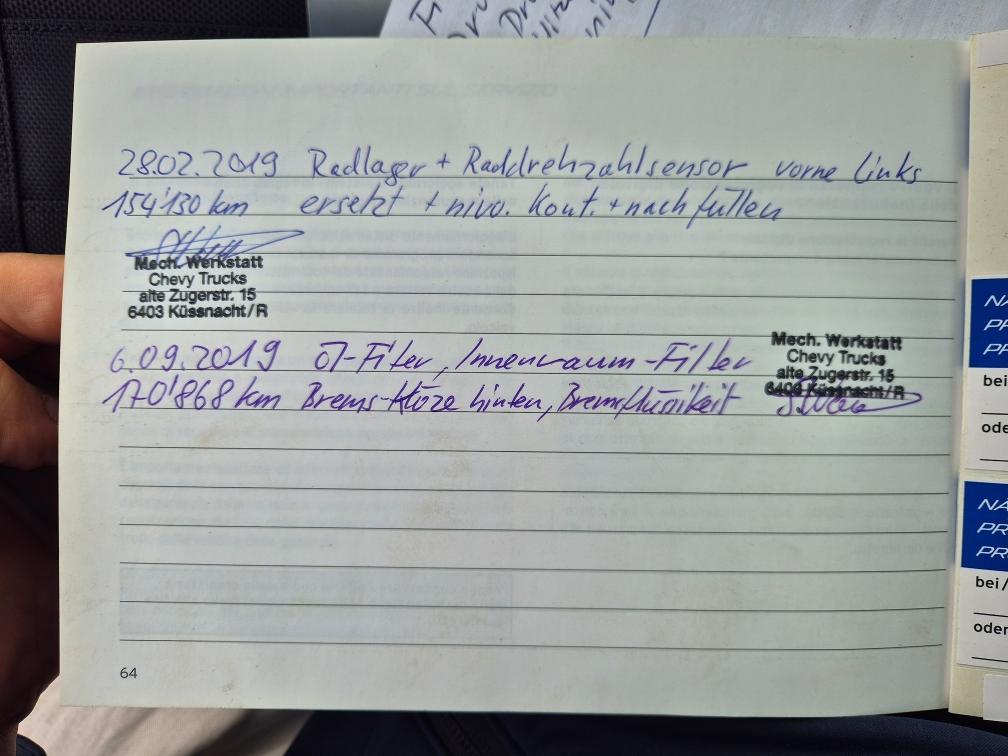 28.02.2019 Radlager + Raddrehzahlsensor vorne links
154'130 km ersetzt + nivo. kont. + nachfüllen
Mech. Werkstatt
Chevy Trucks
alte Zugerstr. 15
6403 Küssnacht/R
6.09.2019 Öl-Filter, Innenraum-Filter
170'868 km Brems-klöze hinten, Bremsflüssikeit
Mech. Werkstatt
Chevy Trucks
alte Zugerstr. 15
6403 Küssnacht/R
64
NÄ
PR
PR
bei
ode
NÄ
PR
PR
bei/
oder